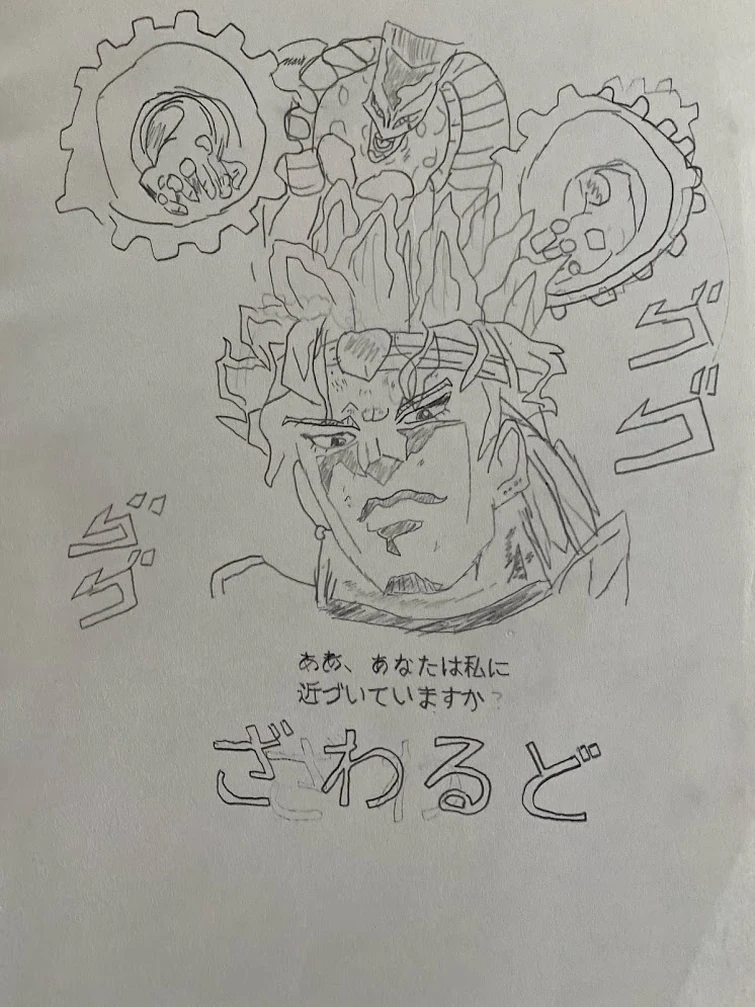 ゴ
ゴ
ゴ
ゴ
ああ、あなたは私に
近づいていますか?
ざわるど